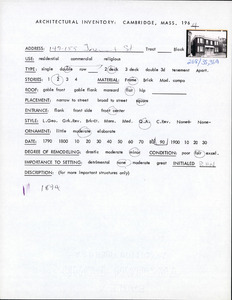 ARCHITECTURAL INVENTORY: CAMBRIDGE, MASS. 1964
ADDRESS: St Tract Block
USE: residential commercial religious
TYPE: single double row 2 deck 3 deck double 3d tenement Apart.
STORIES: 1 2 3 4 MATERIAL: Frame Brick Mod. compo
ROOF: gable front gable flank mansard flat hip
PLACEMENT: narrow to street broad to street square
ENTRANCE: flank front side front center
ORNAMENT: little moderate elaborate
DATE: 1790 1800 10 20 30 40 50 60 70 80 90 1900 10 20 30
DEGREE OF REMODELING: drastic moderate minor CONDITION: poor fair excel.
IMPORTANCE TO SETTING: detrimental none moderate great INITIALED
DESCRIPTION: (for more important structures only)
1894